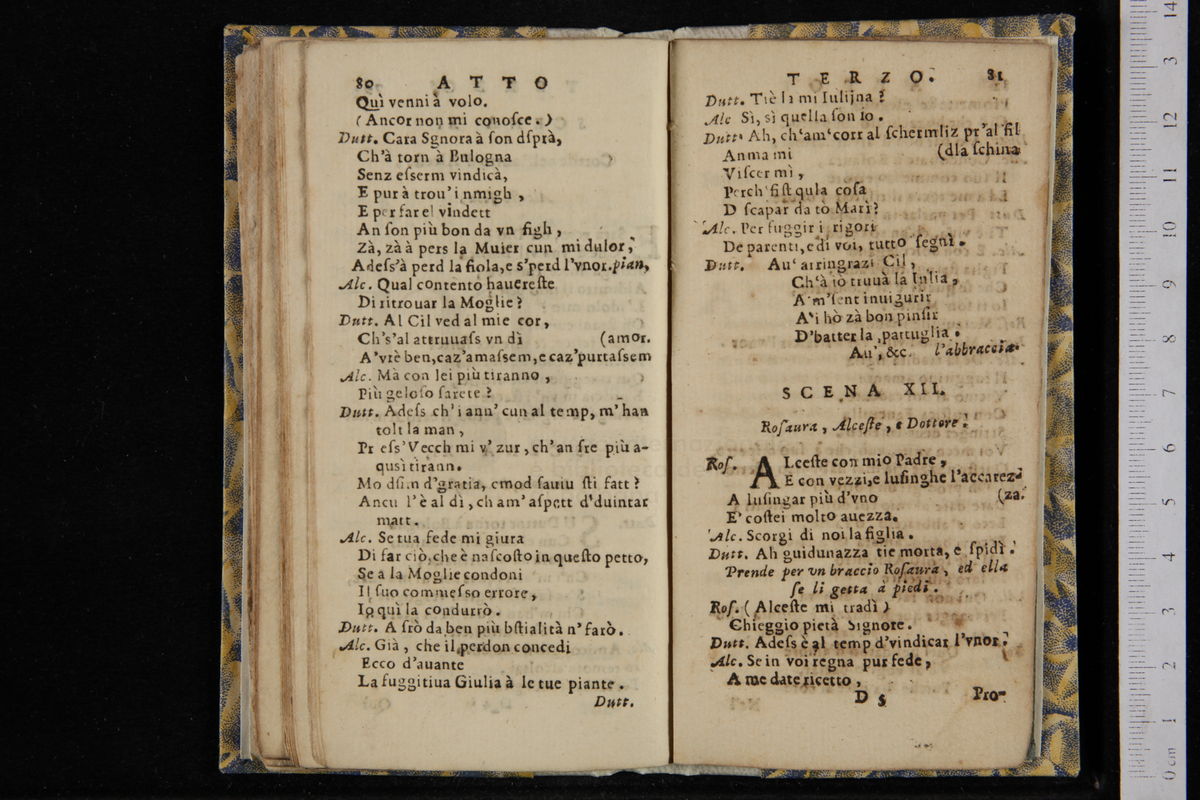 80 ATTO
Quì venni à volo.
(Ancor non mi conoſce.)
Dutt. Cara Sgnora à ſon dſprà,
Ch'à torn à Bulogna
Senz eſserm vindicà,
E pur à trou' i nmigh,
E per far el vindett
An ſon più bon da vn figh,
Zà, zà à pers la Muier cun mi dulor,
Adeſs'à perd la fiola, e s'perd l'vnor. pian,
Alc. Qual contento hauereſte
Di ritrouar la Moglie?
Dutt. Al Cil ved al mie cor,
Ch's'al attruuaſs vn dì (amor.
A'vrè ben, caz'amaſsem, e caz'purtaſsem
Alc. Mà con lei più tiranno,
Più geloſo ſarete?
Dutt. Adeſs ch'i ann' cun al temp, m'han
tolt la man,
Pr eſs' Vecch mi v' zur, ch'an ſre più a-
qusì tirann.
Mo dſim d'gratia, cmod ſauiu ſti fatt?
Ancu l'è al dì, ch am' aſpett d'duintar
matt.
Alc. Se tua fede mi giura
Di far ciò, che è naſcoſto in queſto petto,
Se a la Moglie condoni
Il ſuo commeſso errore,
Io quì la condurrò.
Dutt. A frò da ben più bſtialità n' farò.
Alc. Già, che il perdon concedi
Ecco d'auante
La fuggitiua Giulia à le tue piante.
Dutt.
TERZO. 81
Dutt. Tiè la mi Iulijna?
Alc Sì, sì quella ſon io.
Dutt. Ah, ch'am'corr al ſchermliz pr'al fil
Anma mi (dla ſchina
Viſcer mì,
Perch' fiſt qula coſa
D ſcapar da tò Marì?
Alc. Per fuggir i rigori
De parenti, e di voi, tutto ſegnì.
Dutt. Au' arringrazi Cil,
Ch'à iò truuà la Iulia,
A m'ſent inuigurir
A'i hò zà bon pinſir
D'batter la pattuglia.
Au', &c. l'abbraccia.
SCENA XII.
Roſaura, Alceſte, e Dottore.
Roſ. ALceſte con mio Padre,
E con vezzi, e luſinghe l'accarez-
A luſingar più d'vno (za.
E' coſtei molto auezza.
Alc. Scorgi di noi la figlia.
Dutt. Ah guidunazza tie morta, e ſpidì.
Prende per vn braccio Roſaura, ed ella
ſe li getta à piedi.
Roſ. (Alceſte mi tradì)
Chieggio pietà Signore.
Dutt. Adeſs è al temp d'vindicar l'vnor.
Alc. Se in voi regna pur fede,
A me date ricetto,
D 5 Pro-